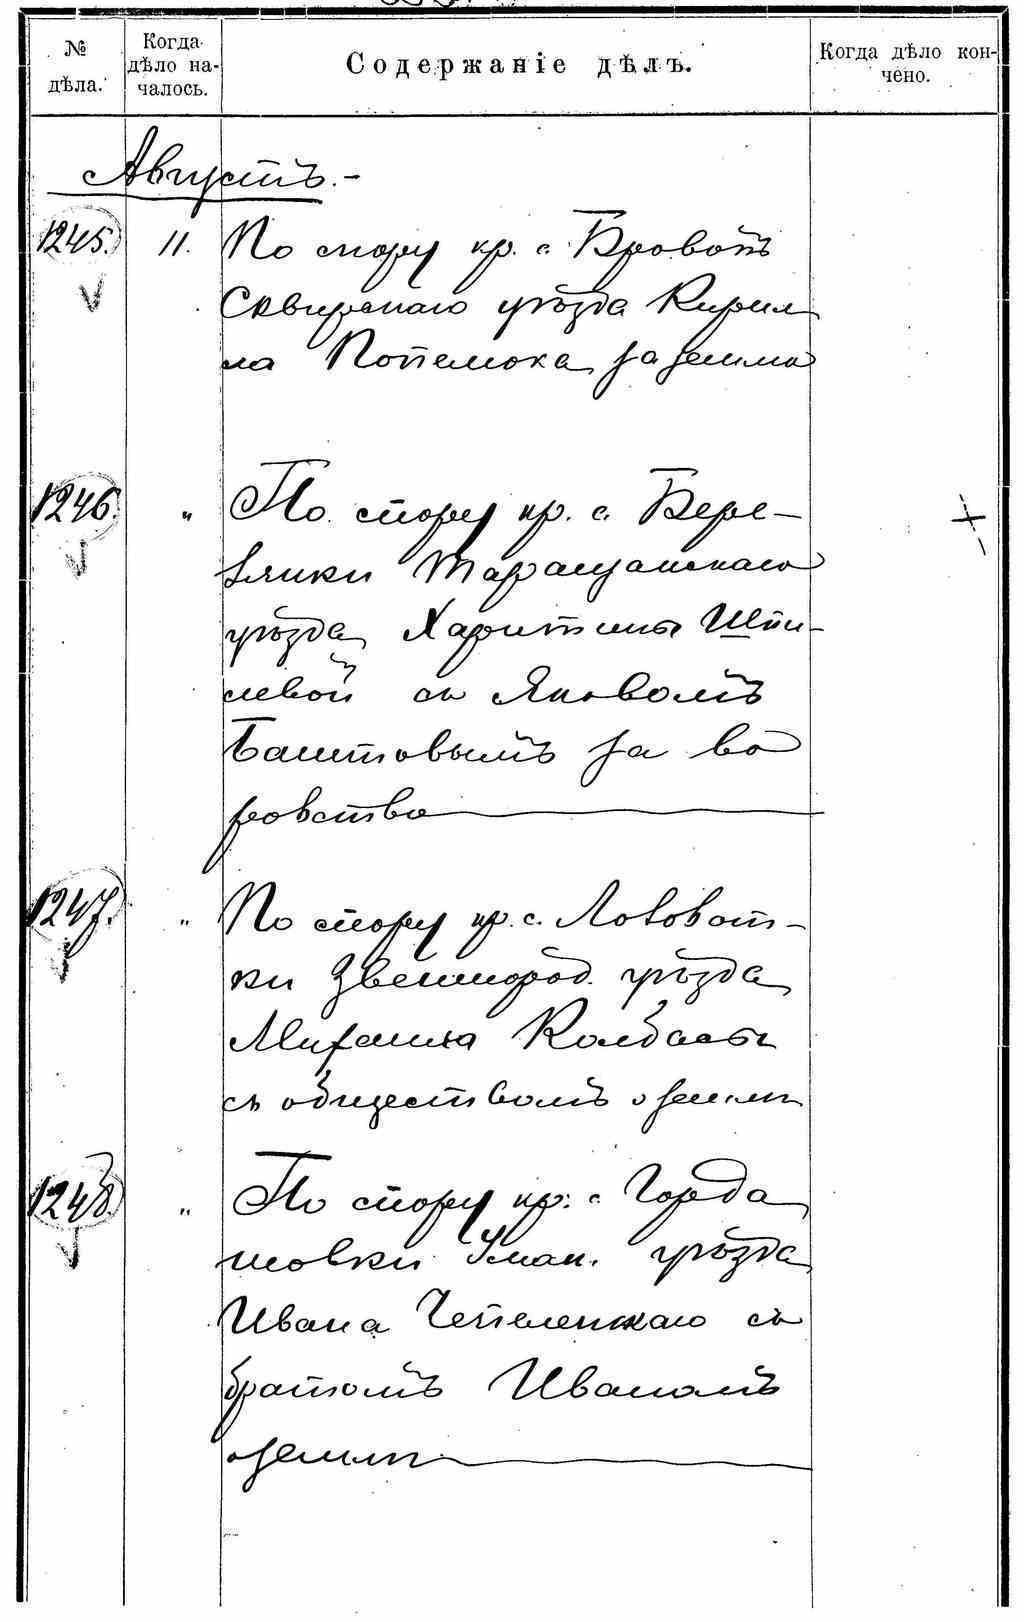 № дѣла.
Когда дѣло на-
чалось.
Содержаніе дѣлъ.
Когда дѣло кон-
чено.
Августъ.-
1245. 11. По спору кр. с. Бровокъ
Сквирскаго уѣзда Кирил
ла за землю
1246. " По спору кр. с. Бере-
зянки Таращанскаго
уѣзда Харитины Шпи-
левой съ Яковомъ
Баштовымъ за во
ровство
1247. " По спору кр. с. Лозоват-
ки Звенигород. уѣзда
Михаила Колбасы
съ обществомъ о землѣ
1248. " По спору кр. с. Горда
шовки Уман. уѣзда
Ивана Чепеленкаго съ
братомъ Иваномъ
о землѣ